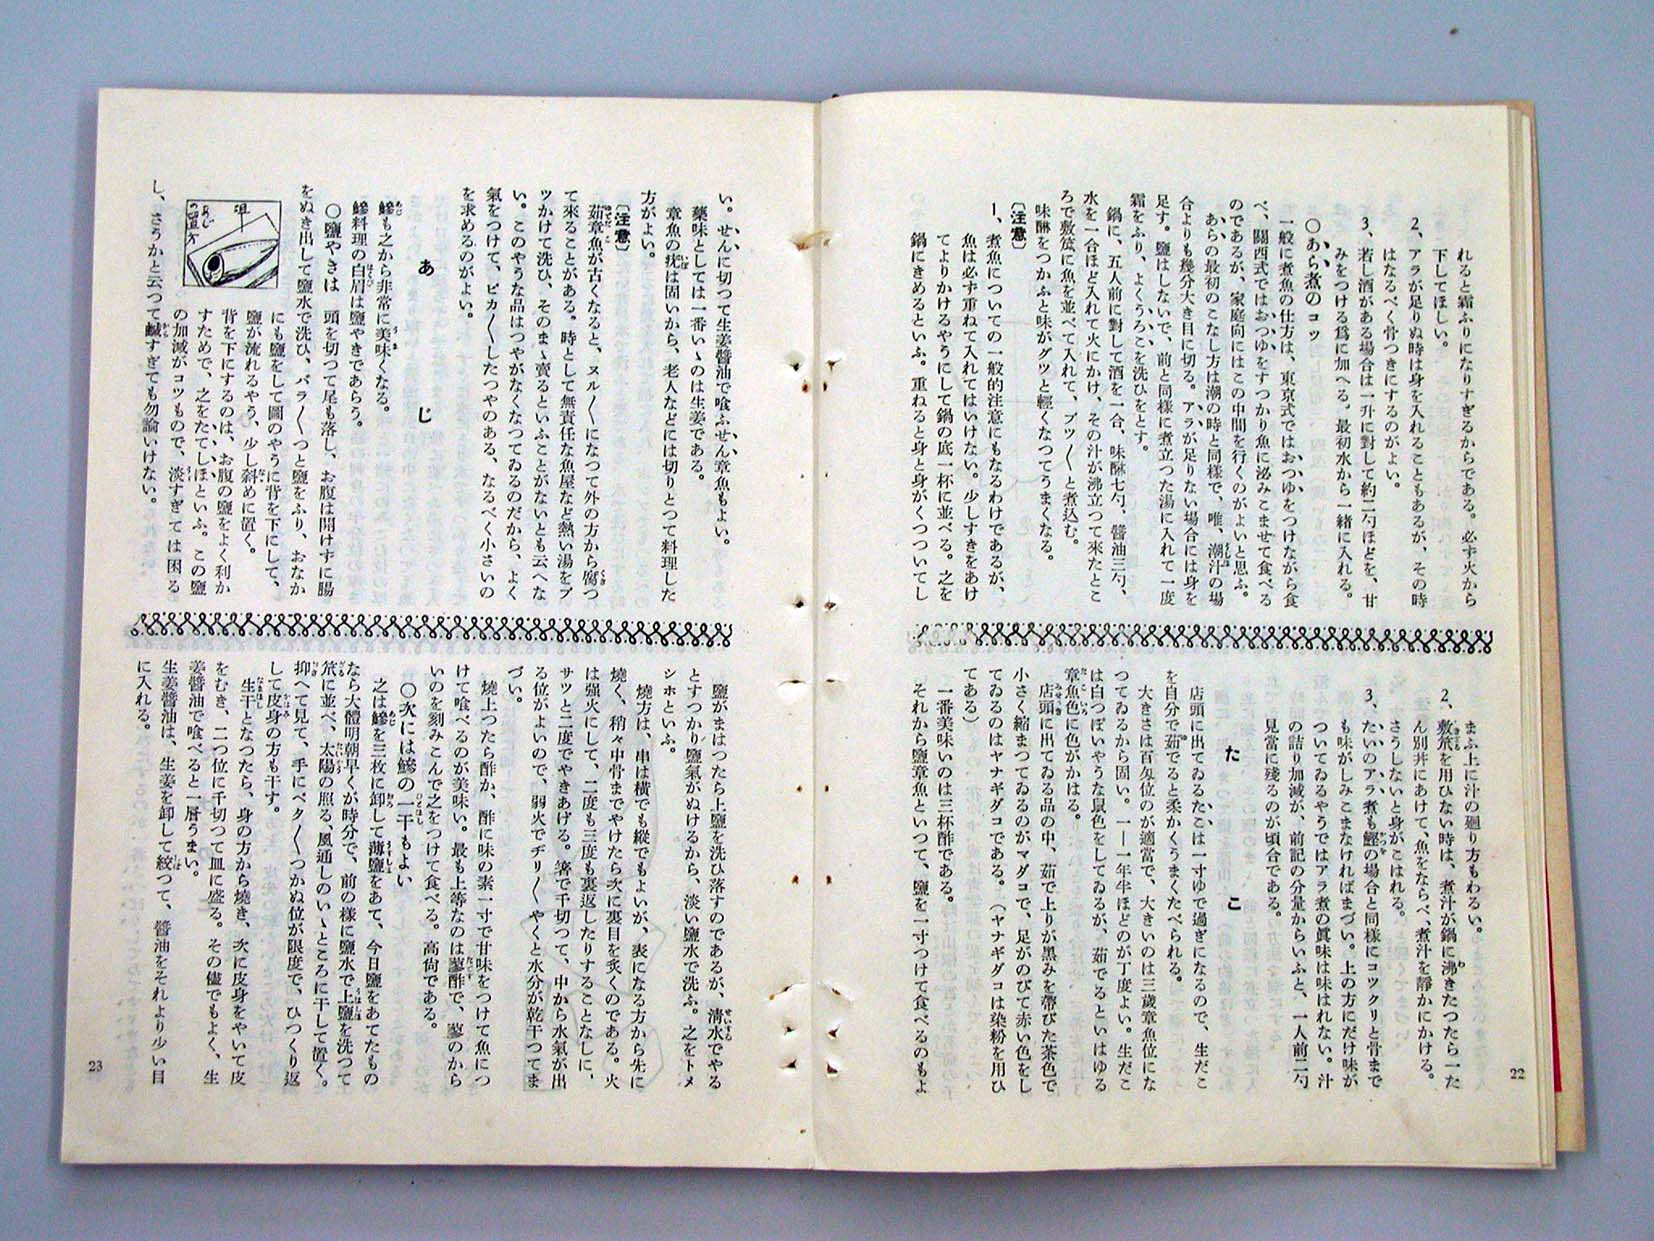 れると霜ふりになりすぎるからである。必ず火から
下してほしい。
2、アラが足りぬ時は身を入れることもあるが、その時
はなるべく骨つきにするのがよい。
3、若し酒がある場合は一升に對して約二勺ほどを、甘
みをつける爲に加へる。最初水から一緒に入れる。
〇あら煮のコツ
一般に煮魚の仕方は、東京式ではおつゆをつけながら食
べ、關西式ではおつゆをすつかり魚に泌みこませて食べる
のであるが、家庭向にはこの中間を行くのがよいと思ふ。
あらの最初のこなし方は潮の時と同様で、唯、潮汁の場
合よりも幾分大き目に切る。アラが足りない場合には身を
足す。鹽はしないで、前と同様に煮立つた湯に入れて一度
霜をふり、よくうろこを洗ひをとす。
鍋に、五人前に對して酒を一合、味醂七勺、醤油三勺、
水を一合ほど入れて火にかけ、その汁が沸立つて來たとこ
ろで敷笊に魚を並べて入れて、ブツ〱と煮込む。
味醂をつかふと味がグツと輕くなつてうまくなる。
〔注意〕
1、煮魚についての一般的注意にもなるわけであるが、
魚は必ず重ねて入れてはいけない。少しすきをあけ
てよりかけるやうにして鍋の底一杯に並べる。之を
鍋にきめるといふ。重ねると身と身がくつついてし
まふ上に汁の廻り方もわるい。
2、敷笊を用ひない時は、煮汁が鍋に沸きたつたら一た
ん別丼にあけて、魚をならべ、煮汁を靜かにかける。
さうしないと身がこはれる。
3、たいのアラ煮も鰹の場合と同様にコツクリと骨まで
も味がしみこまなければまづい。上の方にだけ味が
ついてゐるやうではアラ煮の眞味は味はれない。汁
の詰り加減が、前記の分量からいふと、一人前二勺
見當に殘るのが頃合である。
たこ
店頭に出てゐるたこは一寸ゆで過ぎになるので、生だこ
を自分で茹でると柔かくうまくたべられる。
大きさは百匁位のが適當で、大きいのは三歳章魚位にな
つてゐるから固い。一―一年半ほどのが丁度よい。生だこ
は白つぽいやうな鼠色をしてゐるが、茹でるといはゆる
章魚色に色がかはる。
店頭に出てゐる品の中、茹で上りが黑みを帶びた茶色で
小さく縮まつてゐるのがマダコで、足がのびて赤い色をし
てゐるのはヤナギダコである。（ヤナギダコは染粉を用ひ
てある）
一番美味いのは三杯酢である。
それから鹽章魚といつて、鹽を一寸つけて食べるのもよ
22
い。せんに切つて生姜醤油で喰ふせん章魚もよい。
藥味としては一番いゝのは生姜である。
章魚の疣は固いから、老人などには切りとつて料理した
方がよい。
〔注意〕
茹章魚が古くなると、ヌル〱になつて外の方から腐つ
て來ることがある。時として無責任な魚屋など熱い湯をブ
ツかけて洗ひ、そのまゝ賣るといふことがないとも云へな
い。このやうな品はつやがなくなつてゐるのだから、よく
氣をつけて、ピカ〱したつやのある、なるべく小さいの
を求めるのがよい。
あじ
鰺も之から非常に美味くなる。
鰺料理の白眉は鹽やきであらう。
〇鹽やきは 頭を切つて尾も落し、お腹は開けずに腸
をぬき出して鹽水で洗ひ、パラ〱つと鹽をふり、おなか
にも鹽をして圖のやうに背を下にして、
鹽が流れるやう、少し斜めに置く。
背を下にするのは、お腹の鹽をよく利か
すためで、之をたてしほといふ。この鹽
の加減がコツもので、淡すぎては困る
し、さうかと云つて鹹すぎても勿論いけない。
俎
あじの置方
鹽がまはつたら上鹽を洗ひ落すのであるが、淸水でやる
とすつかり鹽氣がぬけるから、淡い鹽水で洗ふ。之をトメ
シホといふ。
燒方は、串は橫でも縱でもよいが、表になる方から先に
燒く。稍々中骨までやけたら次に裏目を炙くのである。火
は强火にして、二度も三度も裏返したりすることなしに、
サツと二度でやきあげる。箸で千切つて、中から水氣が出
る位がよいので、弱火でヂリ〱やくと水分が乾干つてま
づい。
燒上つたら酢か、酢に味の素一寸で甘味をつけて魚につ
けて喰べるのが美味い。最も上等なのは蓼酢で、蓼のから
いのを刻みこんで之をつけて食べる。高尚である。
〇次には鰺の一干もよい
之は鰺を三枚に卸して薄鹽をあて、今日鹽をあてたもの
なら大體明朝早くが時分で、前の様に鹽水で上鹽を洗つて
笊に並べ、太陽の照る、風通しのいゝところに干して置く。
抑へて見て、手にペタ〱つかぬ位が限度で、ひつくり返
して皮身の方も干す。
生干となつたら、身の方から燒き、次に皮身をやいて皮
をむき、二つ位に千切つて皿に盛る。その儘でもよく、生
姜醤油で喰べると一層うまい。
生姜醤油は、生姜を卸して絞つて、醤油をそれより少い目
に入れる。
23